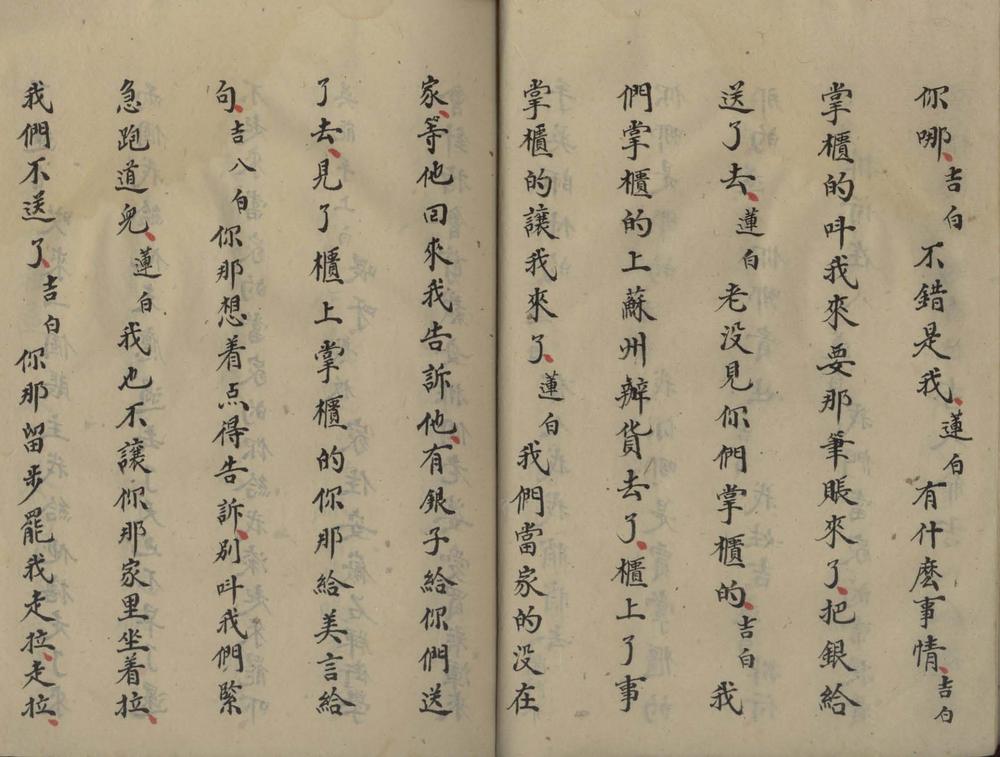 你哪、吉白不錯是我、蓮白有什麽事情、吉白
掌櫃的呌我來要那筆賬來了、把銀給
送了去、蓮白老没見你們掌櫃的、吉白我
們掌櫃的上蘇州辦貨去了、櫃上了事
掌櫃的讓我來了、蓮白我們當家的没在
家、等他回來我告訴他、有銀子給你們送
了去、見了櫃上掌櫃的你那給美言給
句、吉八白你那想着点得告訴、别呌我們緊
急跑道兒、蓮白我也不讓你那家里坐着拉、
我們不送了、吉白你那留步罷我走拉、走拉、